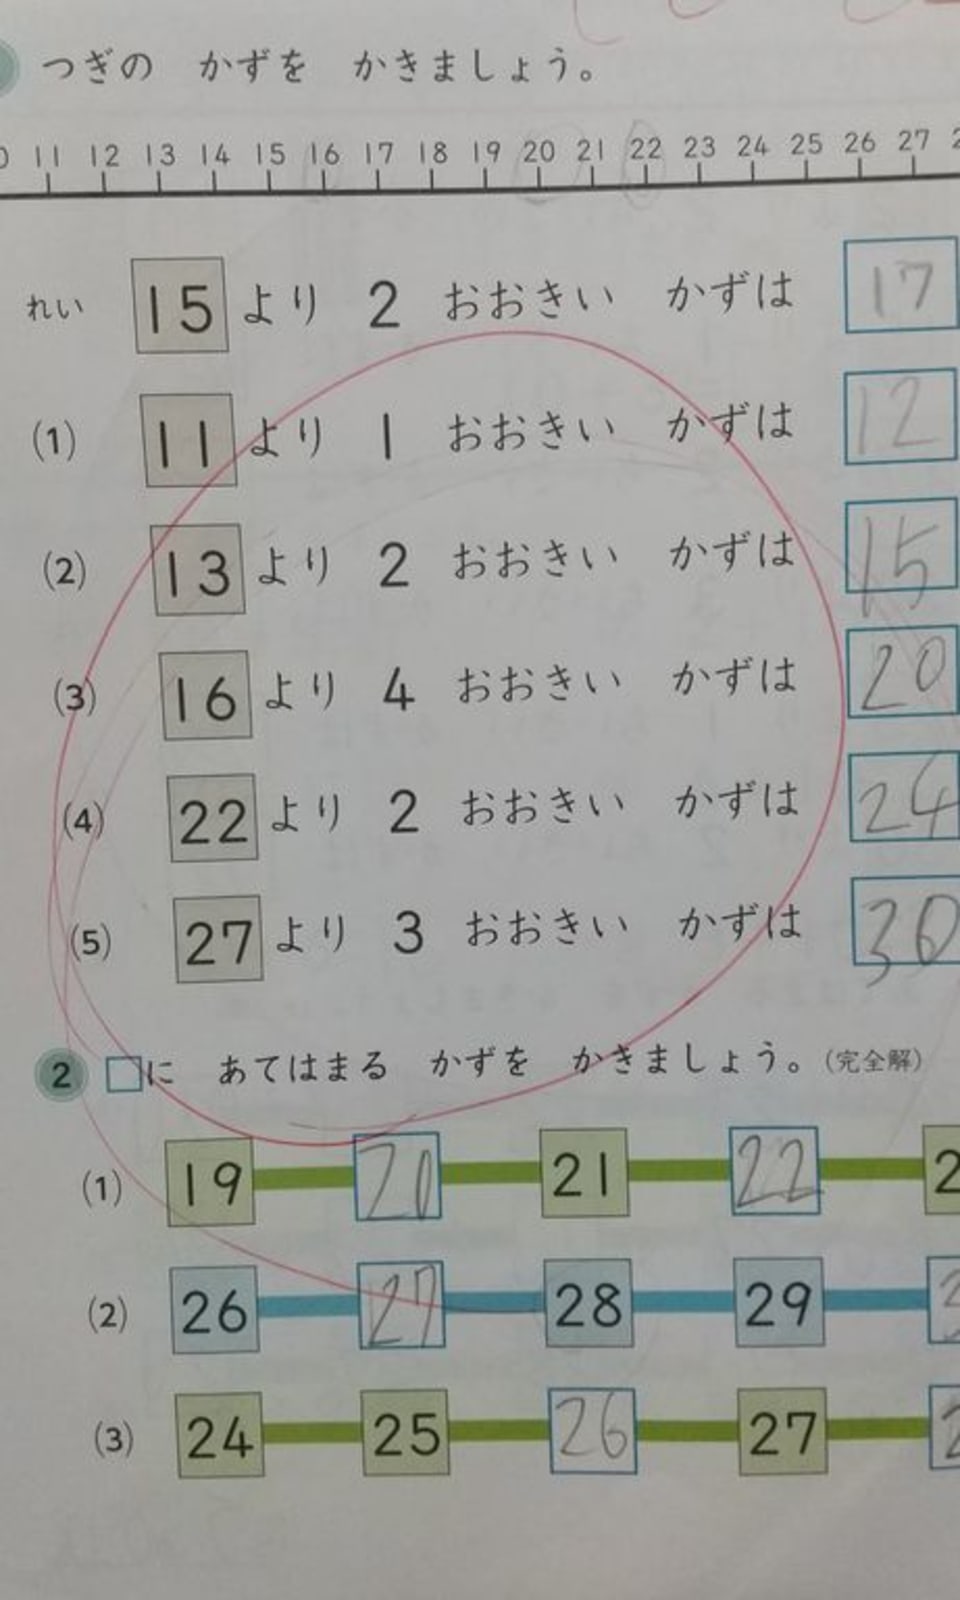 つぎの かずを かきましょう。
11 12 13 14 15 16 17 18 19 20 21 22 23 24 25 26 27
れい 15 より 2 おおきい かずは 17
(1) 11 より 1 おおきい かずは 12
(2) 13 より 2 おおきい かずは 15
(3) 16 より 4 おおきい かずは 20
(4) 22 より 2 おおきい かずは 24
(5) 27 より 3 おおきい かずは 30
2 □に あてはまる かずを かきましょう。(完全解)
(1) 19 20 21 22 2
(2) 26 27 28 29 3
(3) 24 25 26 27 2